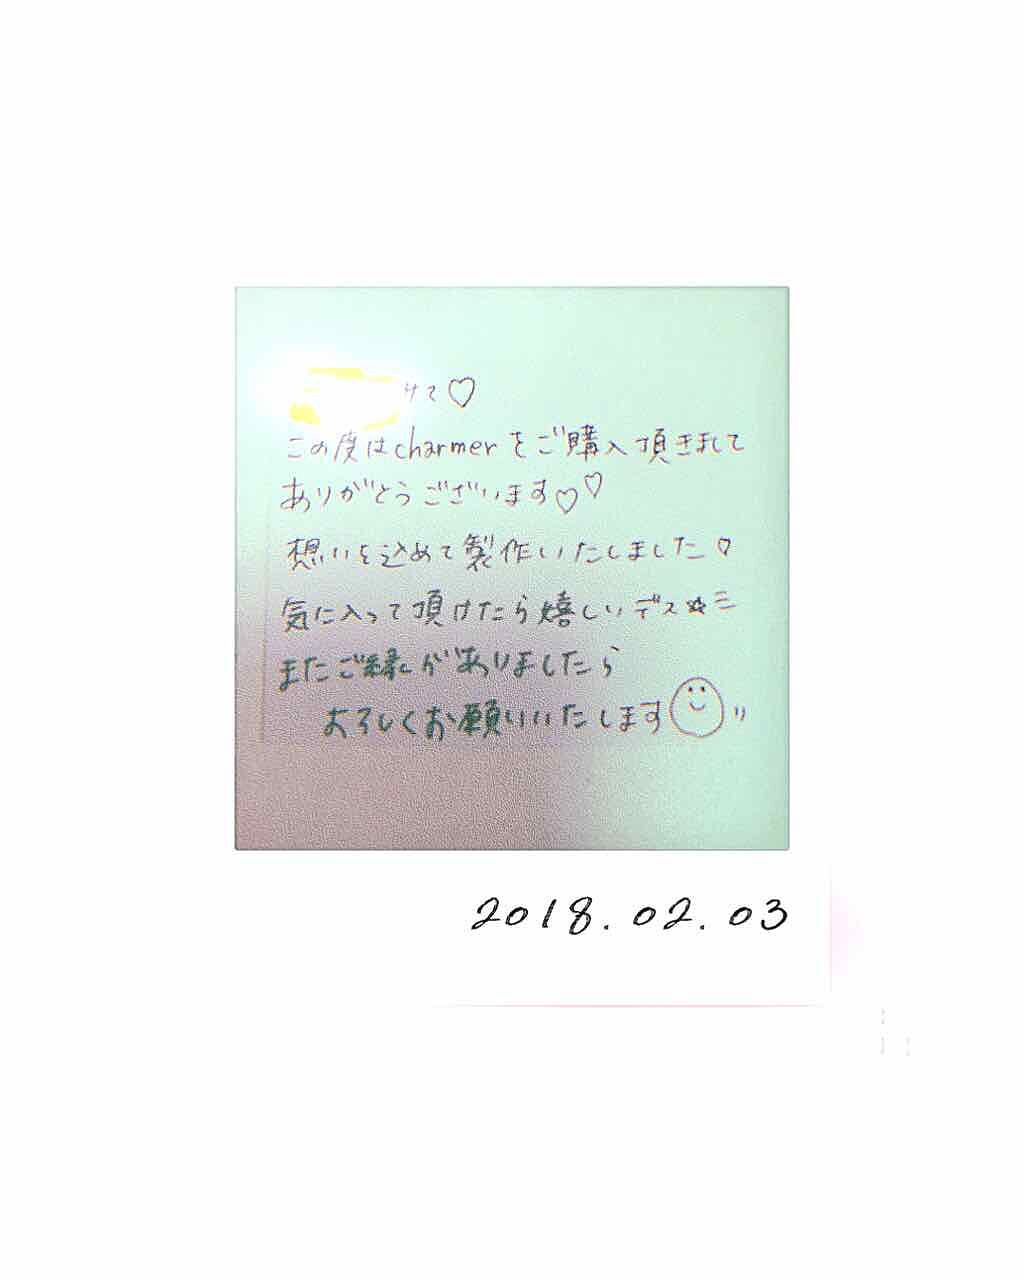 この度はcharmerをご購入頂きまして
ありがとうございます♡♡
想いを込めて製作いたしました♡
気に入って頂けたら嬉しいデス☆ミ
またご縁がありましたら
よろしくお願いいたします
2018.02.03